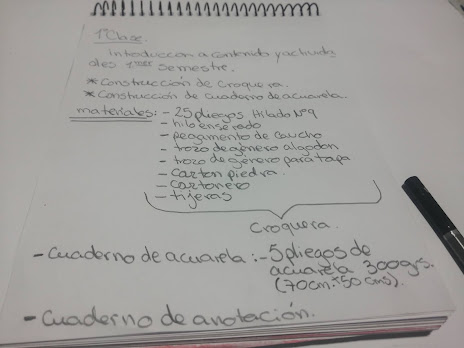 1ºClase.
Introducción a contenido y activid
ades 1er semestre.
* Construcción de Croquera.
* Construcción de cuaderno de acuarela.
materiales: - 25 pliegos Hilado Nº9
- hilo encerado
- pegamento de caucho
- trozo de género algodon
- trozo de género para tapa
- carton piedra.
- cartonero
- tijeras
Croquera.
- Cuaderno de acuarela: - 5 pliegos de
acuarela 300grs.
(70cm.*50 cms).
- Cuaderno de anotación.